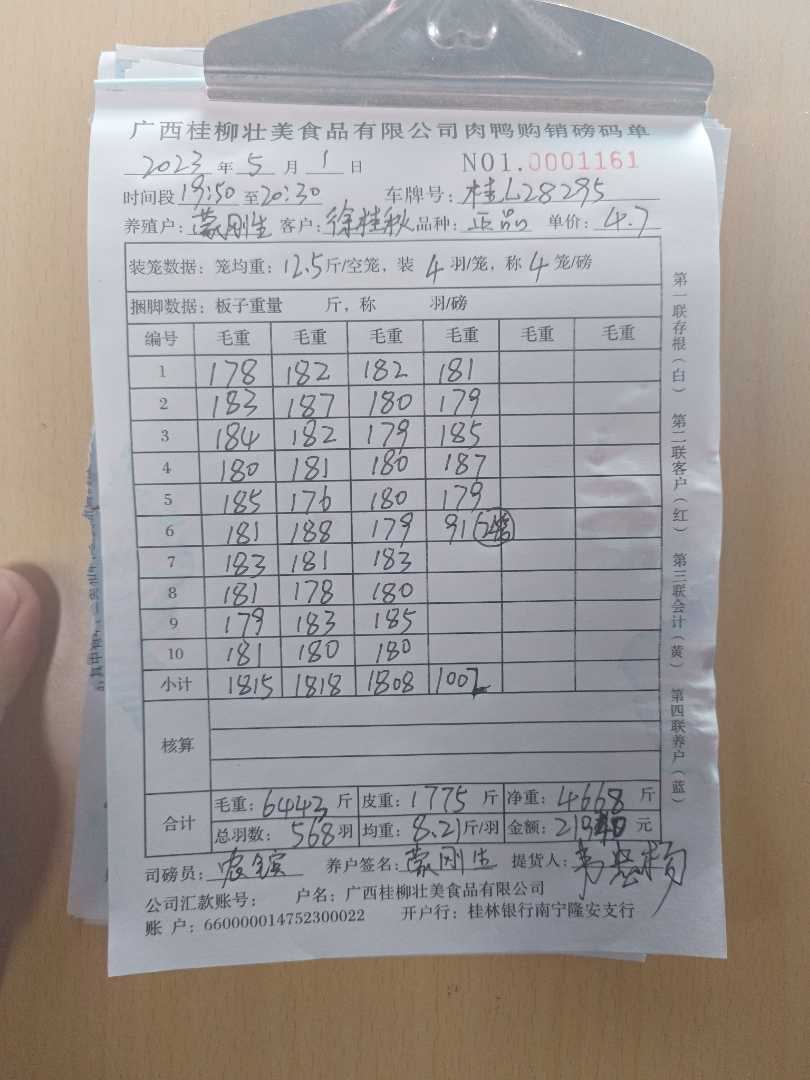 广西桂柳壮美食品有限公司肉鸭购销磅码单
2023 年 5 月 1 日 NO1.0001161
时间段 19:50 至 20:30 车牌号: 桂L28295
养殖户: 蒙刚生 客户: 徐桂秋 品种: 正品 单价: 4.7
装笼数据: 笼均重: 12.5 斤/空笼, 装 4 羽/笼, 称 4 笼/磅
捆脚数据: 板子重量 斤, 称 羽/磅
编号 毛重 毛重 毛重 毛重 毛重 毛重
1 178 182 182 181
2 183 187 180 179
3 184 182 179 185
4 180 181 180 187
5 185 176 180 179
6 181 188 179 91 2笼
7 183 181 183
8 181 178 180
9 179 183 185
10 181 180 180
小计 1815 1818 1808 1002
核算
合计
毛重: 6443 斤 皮重: 1775 斤 净重: 4668 斤
总羽数: 568 羽 均重: 8.21 斤/羽 金额: 21940 元
司磅员: 养户签名: 蒙刚生 提货人:
公司汇款账号: 户名: 广西桂柳壮美食品有限公司
账 户: 660000014752300022 开户行: 桂林银行南宁隆安支行
第一联存根(白) 第二联客户(红) 第三联会计(黄) 第四联养户(蓝)